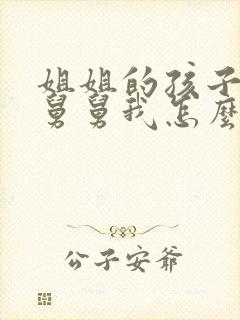 姐姐的孩子
舅舅我怎麼
公子安爺